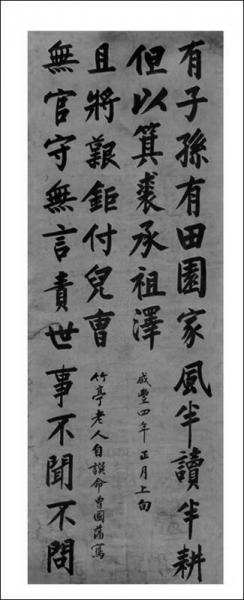 有子孫有田園家風半讀半耕
但以箕裘承祖澤
無官守無言責世事不聞不問
且將艱鉅付兒曹
咸豐四年正月上旬
竹亭老人自譔命曾國藩寫